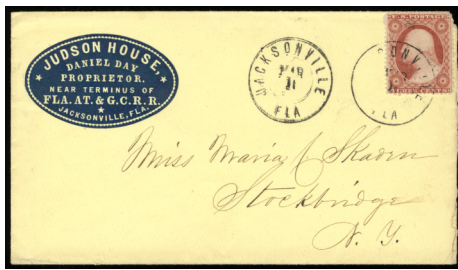 JUDSON HOUSE,
DANIEL DAY
PROPRIETOR.
NEAR TERMINUS OF
FLA. AT. & G.C.R.R.
JACKSONVILLE, FLA.
JACKSONVILLE
MAR
11
FLA
U.S. POSTAGE
SONVILLE
FLA
THREE CENTS
Miss Maria J Skaden
Stockbridge
N. Y.